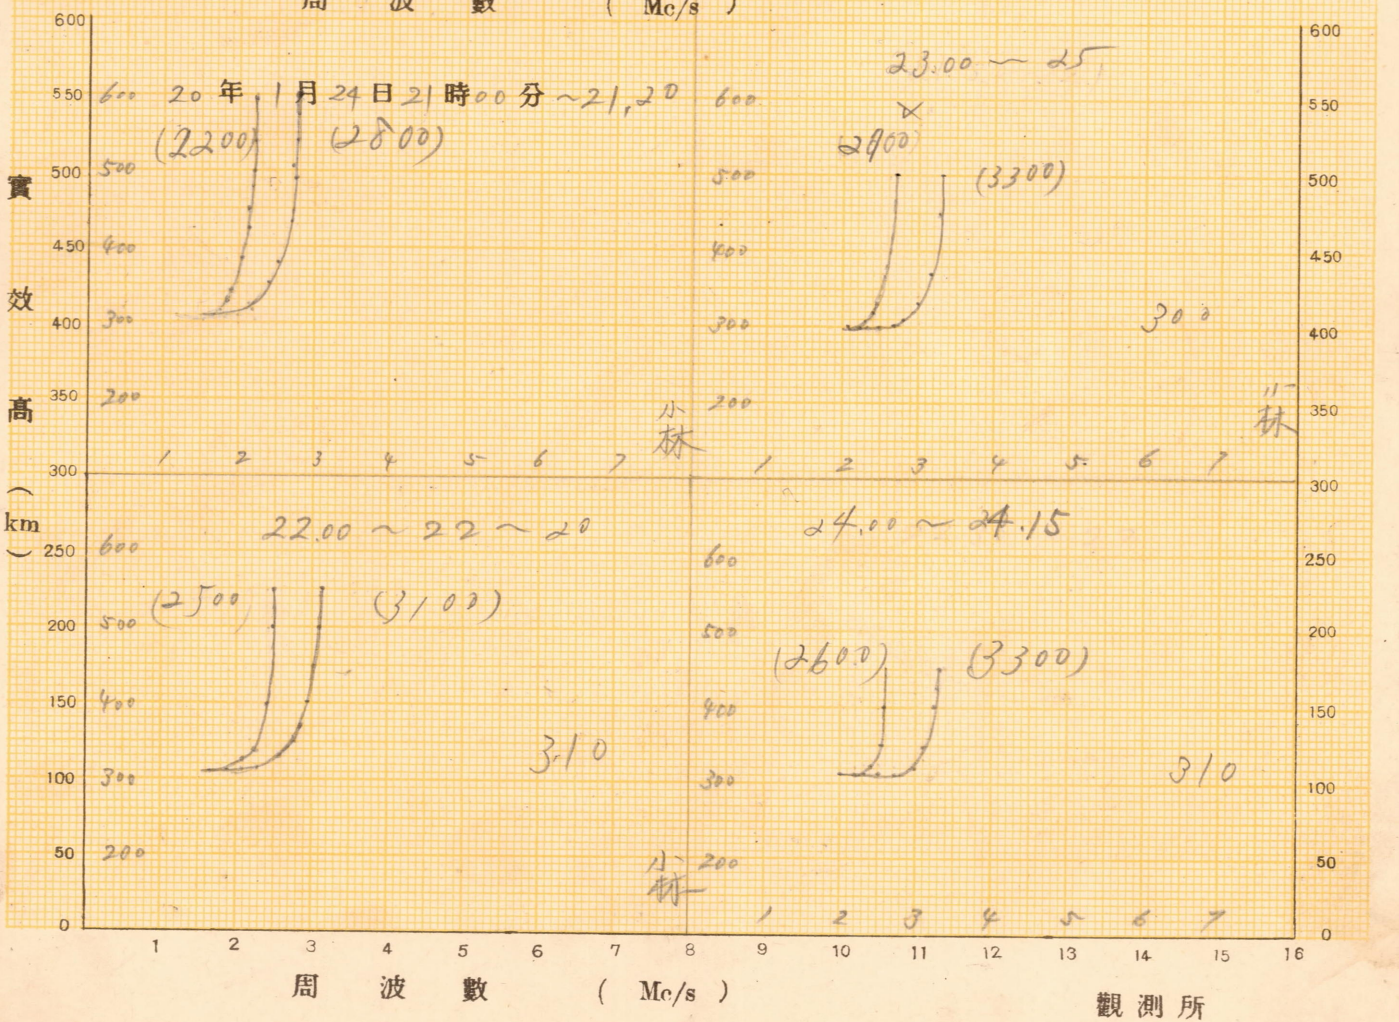 周 波 數 ( Mc/s )
600
550
500
450
400
350
300
250
200
150
100
50
0
實 效 高 ( km )
20年1月24日21時00分~21,20
(2200) (2800)
600
500
400
300
200
小林
1 2 3 4 5 6 7
23.00 ~ 25
(3300)
600
500
400
300
200
300
小林
1 2 3 4 5. 6 7
22.00 ~ 22 ~ 20
(2500) (3100)
600
500
400
300
200
310
小林
24.00 ~ 24.15
(2600) (3300)
600
500
400
300
200
310
1 2 3 4 5 6 7
600
550
500
450
400
350
300
250
200
150
100
50
0
1 2 3 4 5 6 7 8 9 10 11 12 13 14 15 16
周 波 數 ( Mc/s )
觀測所